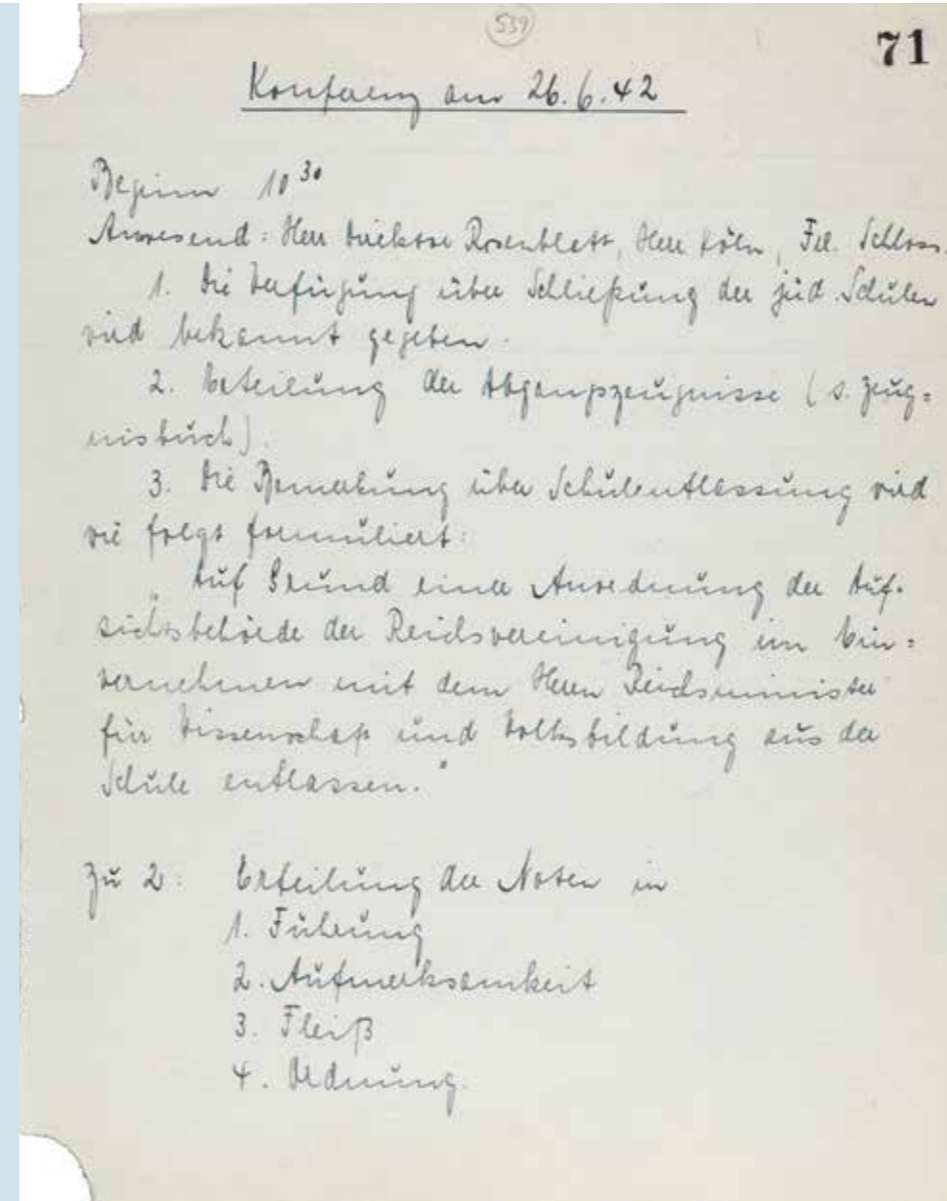 539
71
Konferenz am 26.6.42
Beginn 10 30
Anwesend: Herr Direktor Rosenblatt, Herr Köln, Frl. Schloss.
1. Die Verfügung über Schließung der jüd. Schulen
wird bekannt gegeben.
2. Erteilung der Abgangszeugnisse (s. Zeug=
nisbuch).
3. Die Bemerkung über Schulentlassung wird
wie folgt formuliert:
„Auf Grund einer Anordnung der Auf-
sichtsbehörde der Reichsvereinigung im Ein=
vernehmen mit dem Herrn Reichsminister
für Wissenschaft und Volksbildung aus der
Schule entlassen."
Zu 2: Erteilung der Noten in
1. Führung
2. Aufmerksamkeit
3. Fleiß
4. Ordnung.